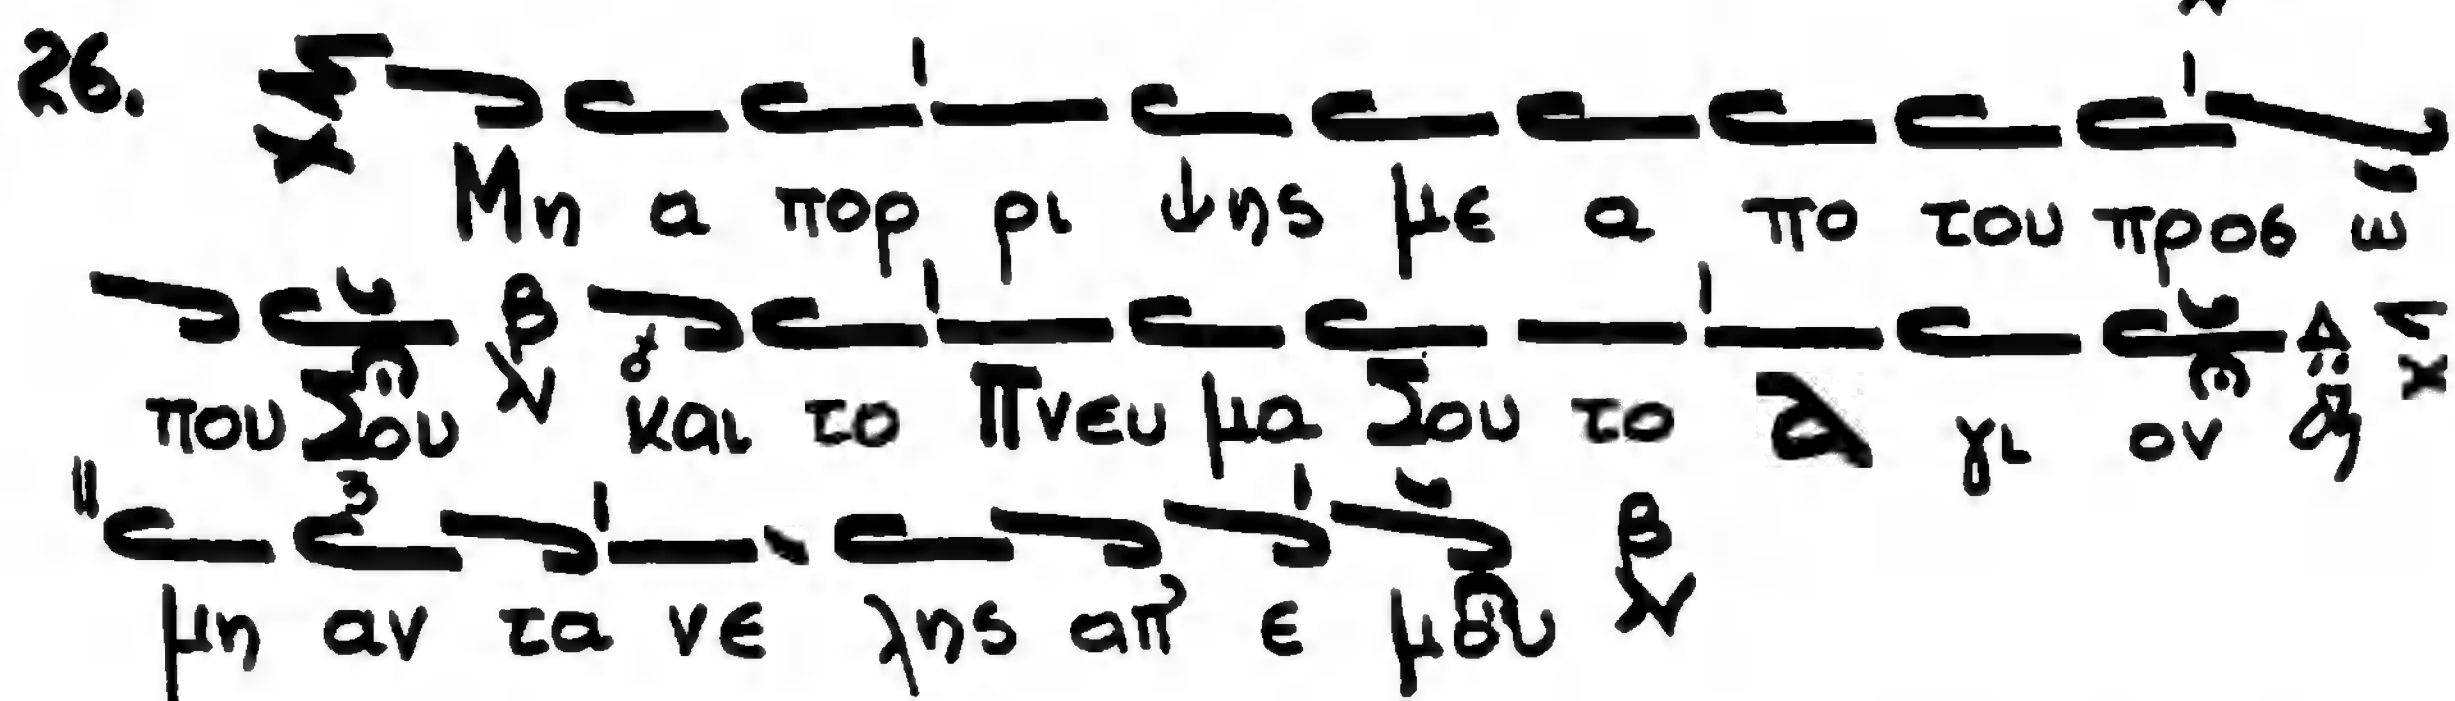 26. Μη α πορ ρι ψης με α πο του προσ ω
που Σου β λ και το Πνευ μα Σου το α γι ον
μη αν τα νε λης απ' ε μου β λ